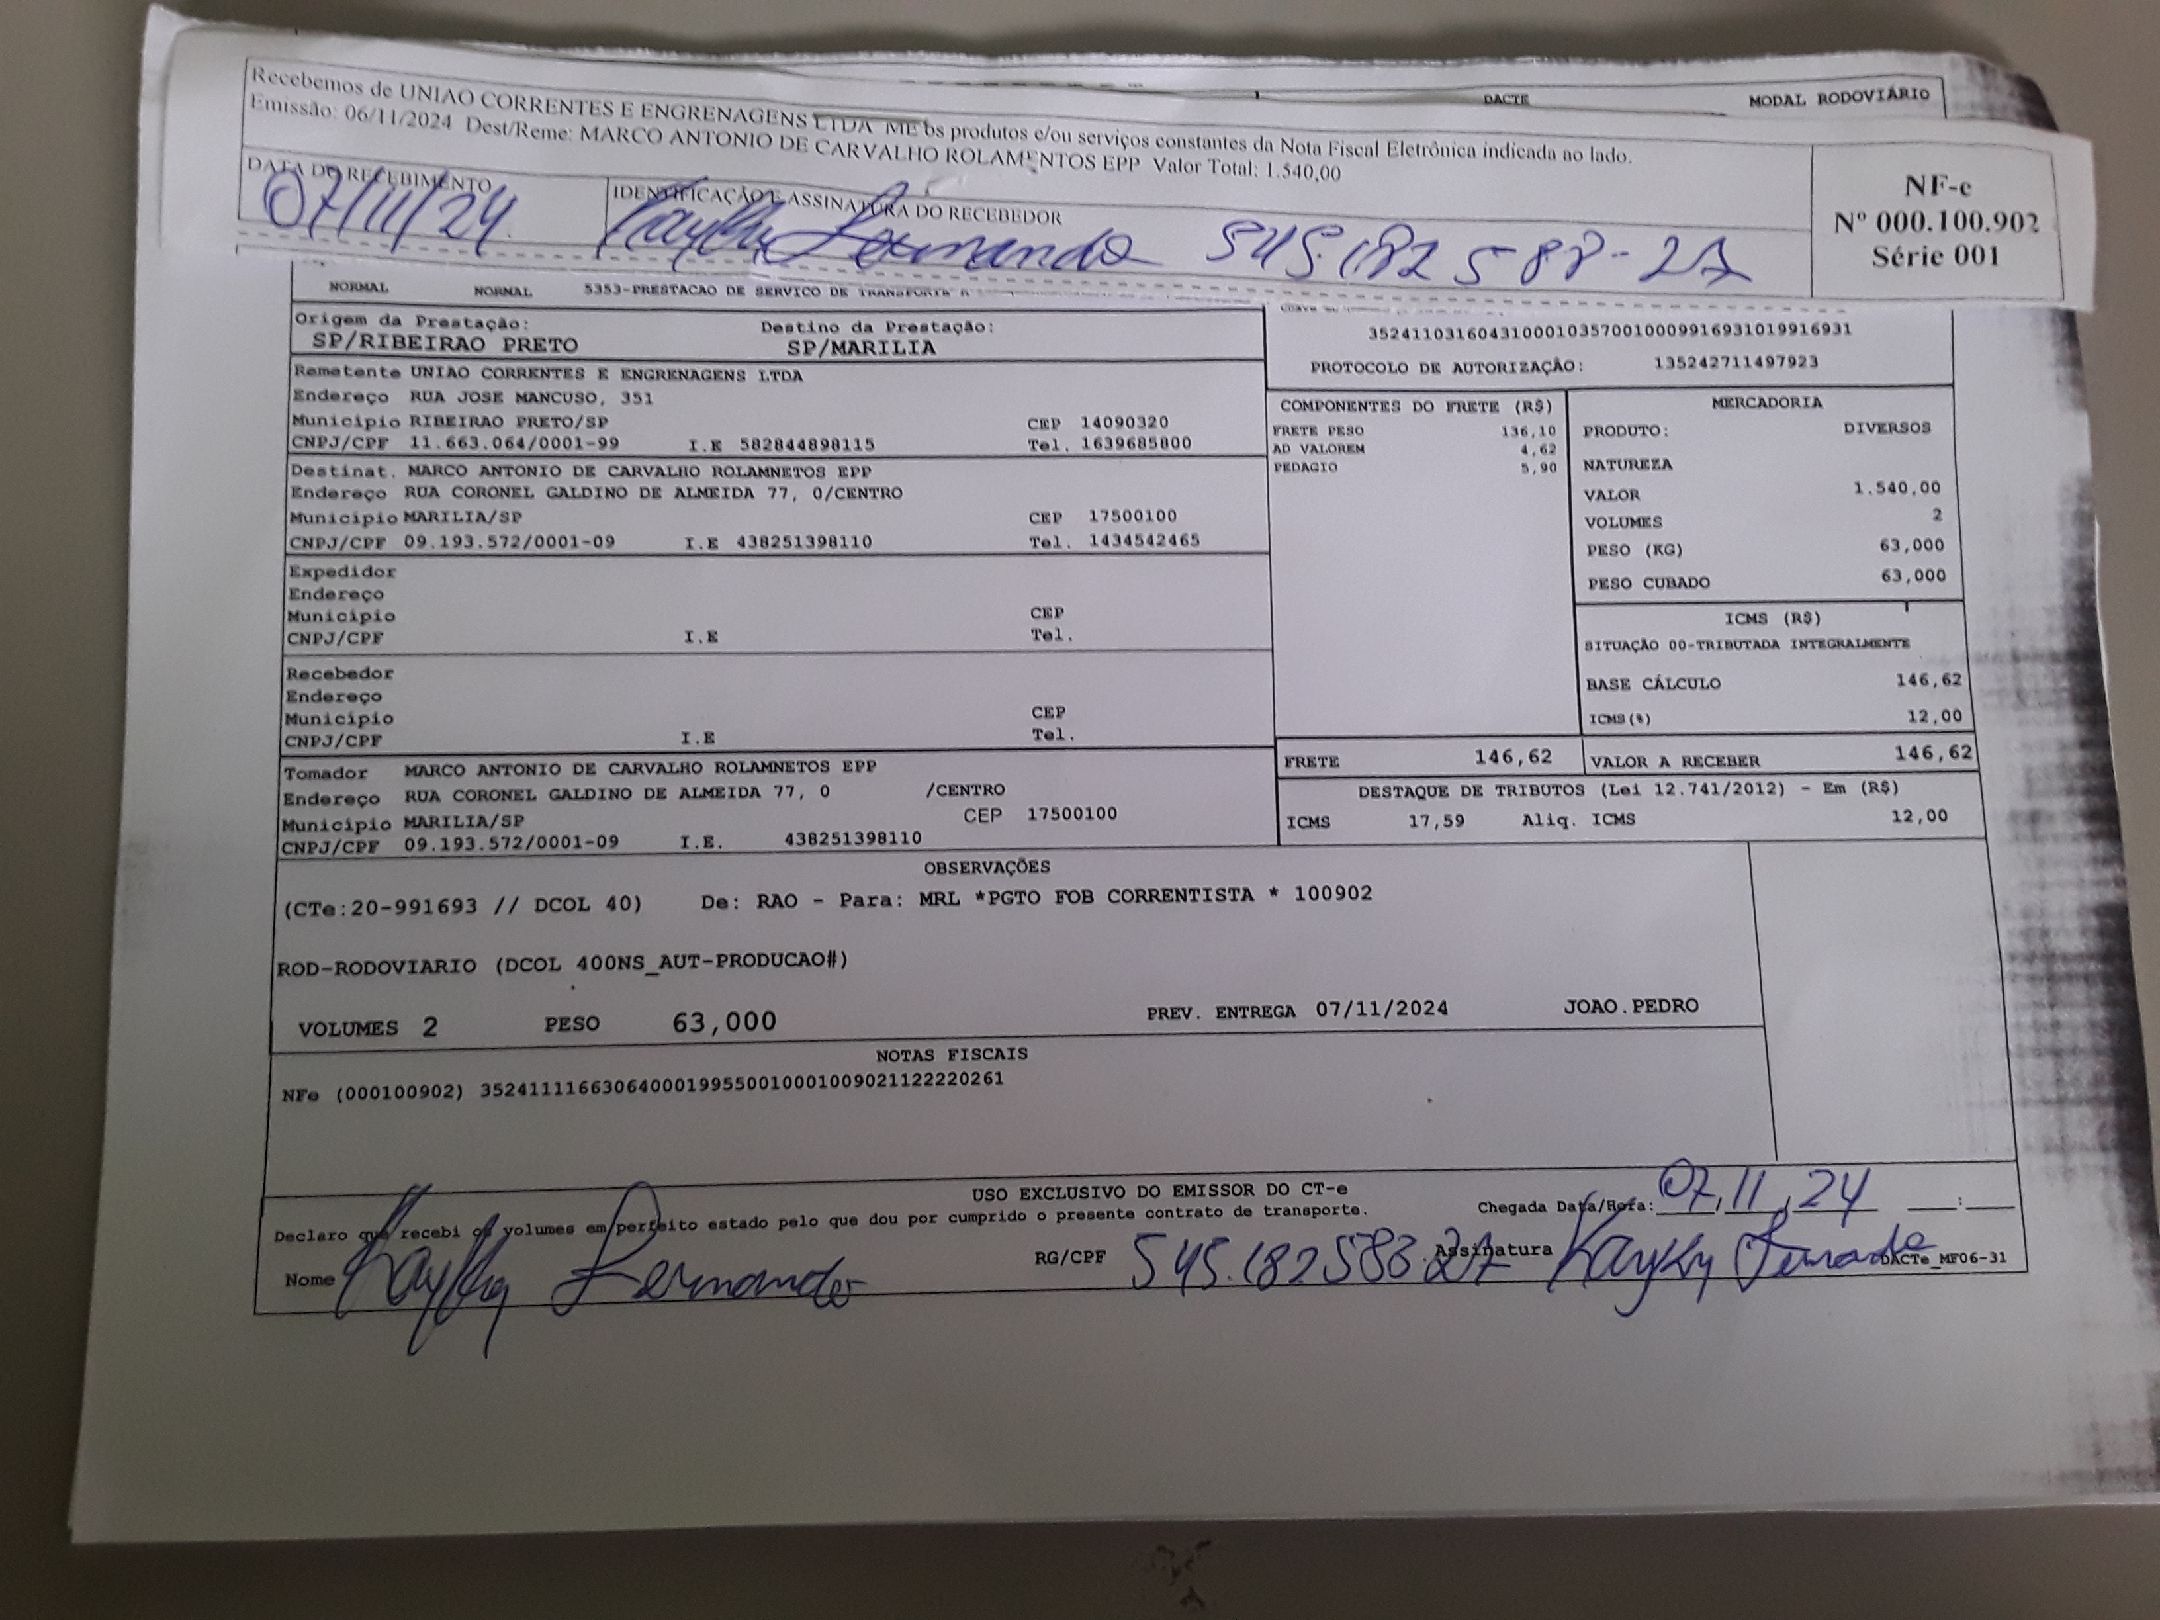 DACTE MODAL RODOVIÁRIO
Recebemos de UNIAO CORRENTES E ENGRENAGENS LTDA ME os produtos e/ou serviços constantes da Nota Fiscal Eletrônica indicada ao lado.
Emissão: 06/11/2024 Dest/Reme: MARCO ANTONIO DE CARVALHO ROLAMENTOS EPP Valor Total: 1.540,00
DATA DO RECEBIMENTO
07/11/24
IDENTIFICAÇÃO E ASSINATURA DO RECEBEDOR
Kayky Fernando 545.182 588-27
NF-e
Nº 000.100.902
Série 001
NORMAL NORMAL 5353-PRESTACAO DE SERVICO DE TRANSPORTE A
Origem da Prestação: Destino da Prestação:
SP/RIBEIRAO PRETO SP/MARILIA
35241103160431000103570010009916931019916931
PROTOCOLO DE AUTORIZAÇÃO: 135242711497923
Remetente UNIAO CORRENTES E ENGRENAGENS LTDA
Endereço RUA JOSE MANCUSO, 351
Município RIBEIRAO PRETO/SP CEP 14090320
CNPJ/CPF 11.663.064/0001-99 I.E 582844898115 Tel. 1639685800
Destinat. MARCO ANTONIO DE CARVALHO ROLAMNETOS EPP
Endereço RUA CORONEL GALDINO DE ALMEIDA 77, 0/CENTRO
Município MARILIA/SP CEP 17500100
CNPJ/CPF 09.193.572/0001-09 I.E 438251398110 Tel. 1434542465
Expedidor
Endereço
Município CEP
CNPJ/CPF I.E Tel.
Recebedor
Endereço
Município CEP
CNPJ/CPF I.E Tel.
Tomador MARCO ANTONIO DE CARVALHO ROLAMNETOS EPP
Endereço RUA CORONEL GALDINO DE ALMEIDA 77, 0 /CENTRO
Município MARILIA/SP CEP 17500100
CNPJ/CPF 09.193.572/0001-09 I.E. 438251398110
COMPONENTES DO FRETE (R$)
FRETE PESO 136,10
AD VALOREM 4,62
PEDAGIO 5,90
MERCADORIA
PRODUTO: DIVERSOS
NATUREZA
VALOR 1.540,00
VOLUMES 2
PESO (KG) 63,000
PESO CUBADO 63,000
ICMS (R$)
SITUAÇÃO 00-TRIBUTADA INTEGRALMENTE
BASE CÁLCULO 146,62
ICMS(%) 12,00
FRETE 146,62 VALOR A RECEBER 146,62
DESTAQUE DE TRIBUTOS (Lei 12.741/2012) - Em (R$)
ICMS 17,59 Aliq. ICMS 12,00
OBSERVAÇÕES
(CTe:20-991693 // DCOL 40) De: RAO - Para: MRL *PGTO FOB CORRENTISTA * 100902
ROD-RODOVIARIO (DCOL 400NS_AUT-PRODUCAO#)
VOLUMES 2 PESO 63,000 PREV. ENTREGA 07/11/2024 JOAO.PEDRO
NOTAS FISCAIS
NFe (000100902) 35241111663064000199550010001009021122220261
USO EXCLUSIVO DO EMISSOR DO CT-e
Declaro que recebi os volumes em perfeito estado pelo que dou por cumprido o presente contrato de transporte.
Chegada Data/Hora: 07, 11, 24 :
Nome Kayky Fernando RG/CPF 545.182 588.27 Assinatura Kayky Fernando
DACTe_MF06-31